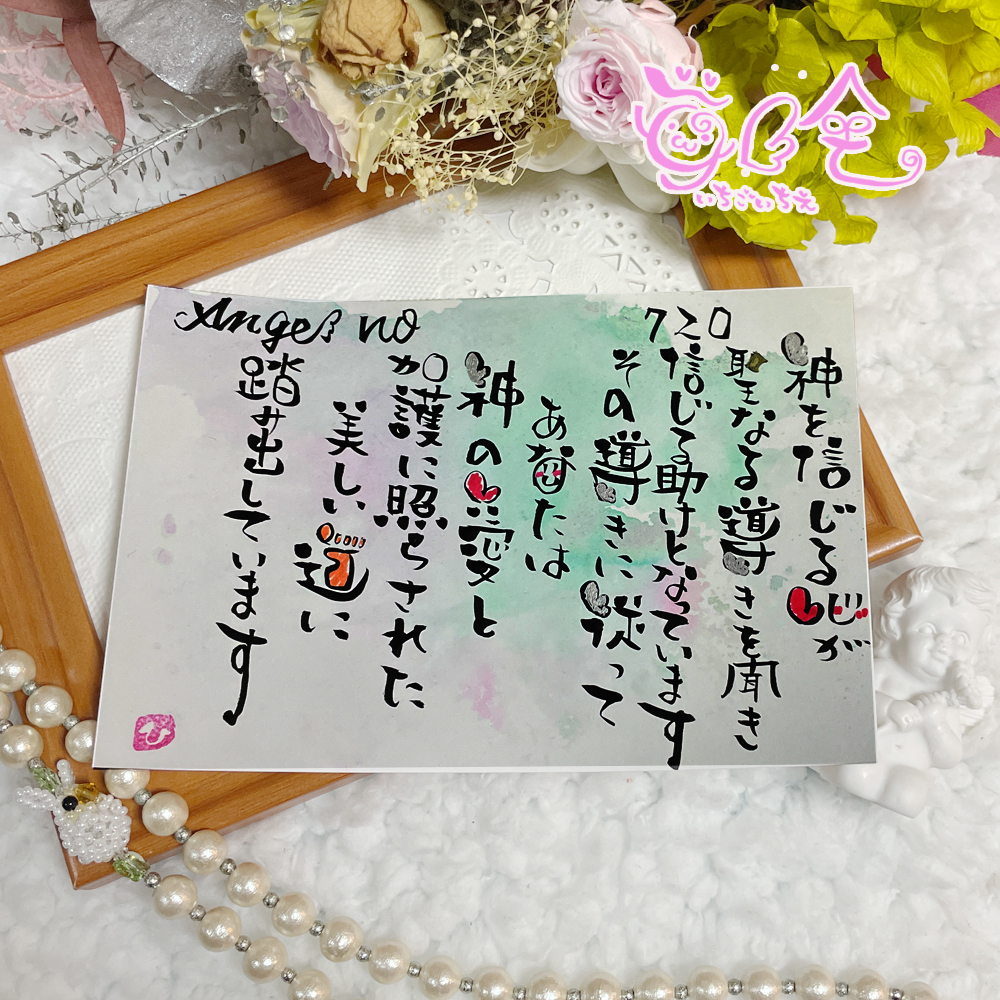 Angel no
720
神を信じる心が
聖なる導きを聞き
信じる助けとなっています
その導きに従って
あなたは
神の愛と
加護に照らされた
美しい道に
踏み出しています
いちごいちえ